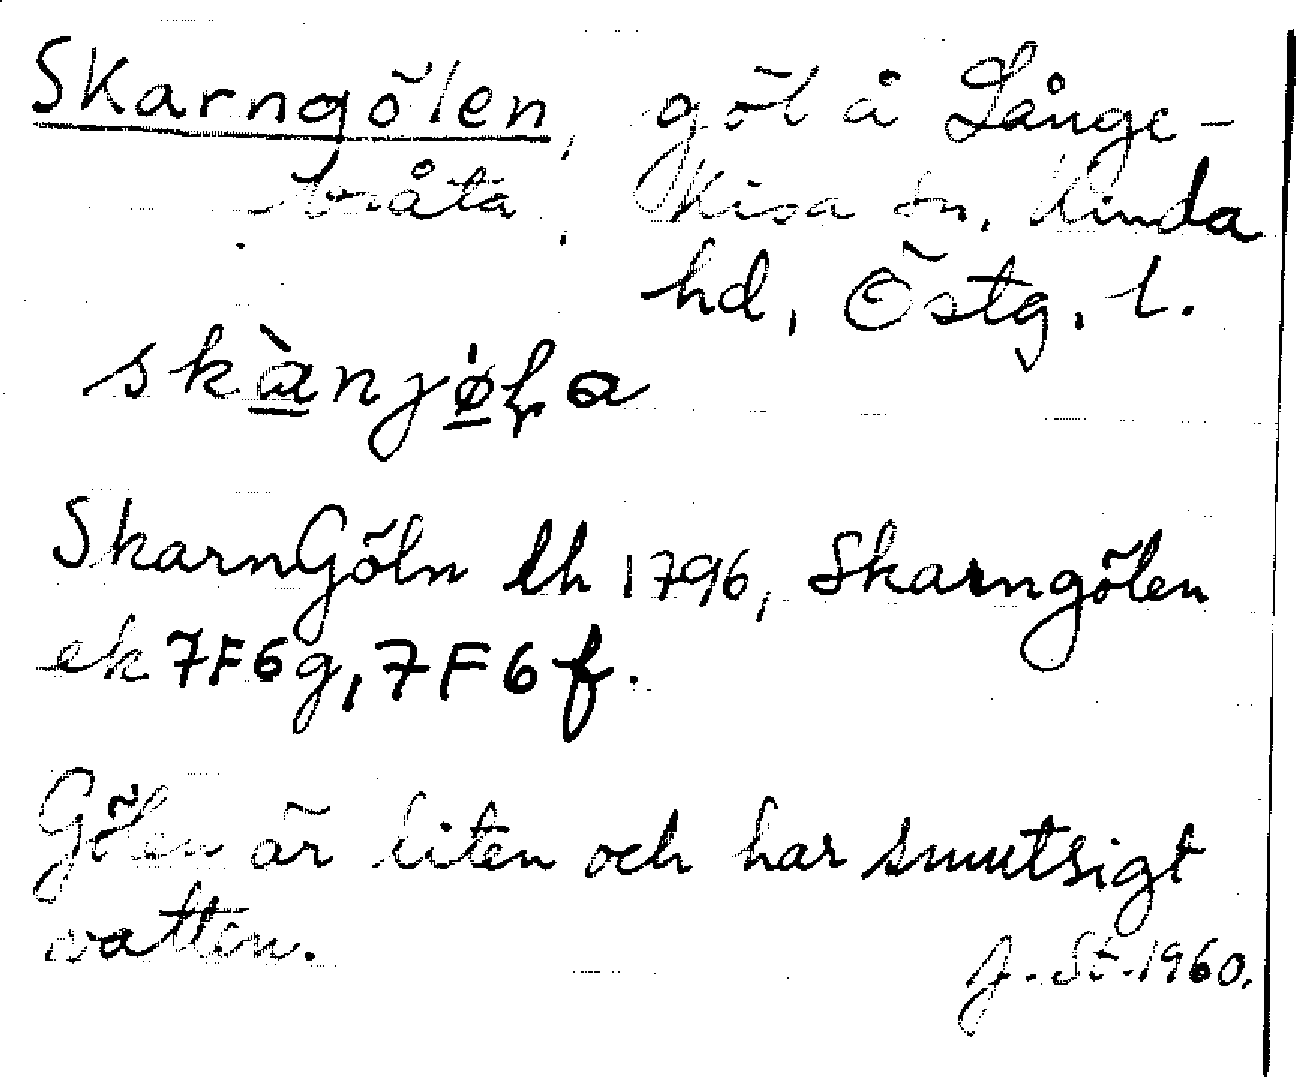 Skarngölen, göl å Långe-
bråta. Kisa sn. Kinda
hd, Östg. l.
skànjø̀ɫa
SkarnGöln lh 1796, Skarngölen
ek 7F6g, 7F6f.
Gölen är liten och har smutsigt
vatten.
J. St. 1960.